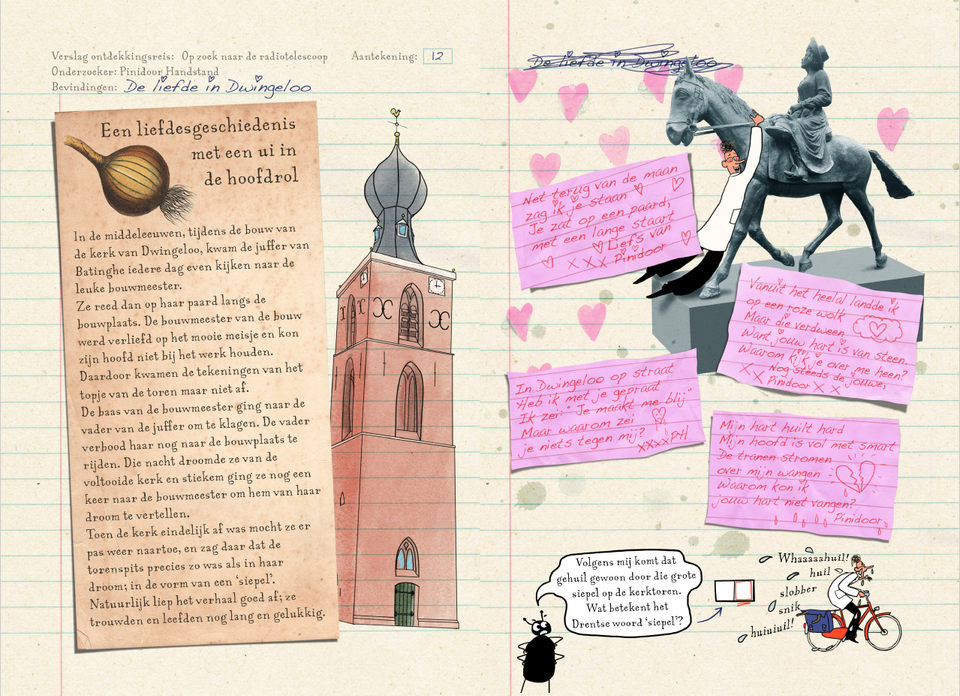 Verslag ontdekkingsreis: Op zoek naar de radiotelescoop Aantekening: 12
Onderzoeker: Pinidoor Handstand
Bevindingen: De liefde in Dwingeloo
Een liefdesgeschiedenis
met een ui in
de hoofdrol
In de middeleeuwen, tijdens de bouw van
de kerk van Dwingeloo, kwam de juffer van
Batinghe iedere dag even kijken naar de
leuke bouwmeester.
Ze reed dan op haar paard langs de
bouwplaats. De bouwmeester van de bouw
werd verliefd op het mooie meisje en kon
zijn hoofd niet bij het werk houden.
Daardoor kwamen de tekeningen van het
topje van de toren maar niet af.
De baas van de bouwmeester ging naar de
vader van de juffer om te klagen. De vader
verbood haar nog naar de bouwplaats te
rijden. Die nacht droomde ze van de
voltooide kerk en stiekem ging ze nog een
keer naar de bouwmeester om hem van haar
droom te vertellen.
Toen de kerk eindelijk af was mocht ze er
pas weer naartoe, en zag daar dat de
torenspits precies zo was als in haar
droom; in de vorm van een ‘siepel’.
Natuurlijk liep het verhaal goed af; ze
trouwden en leefden nog lang en gelukkig.
De liefde in Dwingeloo
Net terug van de maan
zag ik je staan
Je zat op een paard,
met een lange staart
Liefs van
x x x Pinidoor
Vanuit het heelal landde ik
op een roze wolk
Maar die verdween
Want jouw hart is van steen.
Waarom kijk je over me heen?
Nog steeds de jouwe,
x x Pinidoor x x
In Dwingeloo op straat
Heb ik met je gepraat
Ik zei: "Je maakt me blij"
Maar waarom zei
je niets tegen mij?
xxxx PH
Mijn hart huilt hard
Mijn hoofd is vol met smart
De tranen stromen
over mijn wangen
Waarom kon ik
jouw hart niet vangen?
Pinidoor
Volgens mij komt dat
gehuil gewoon door die grote
siepel op de kerktoren.
Wat betekent het
Drentse woord ‘siepel’?
Whaaaaahuil!
huil
slobber
snik
huiuiuil!